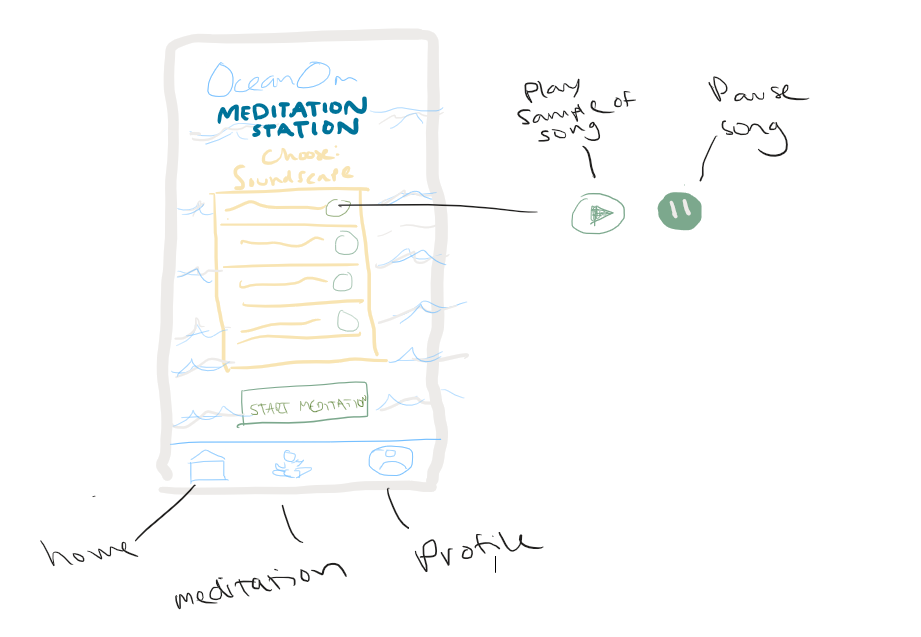 OceanOm
MEDITATION
STATION
Choose:
Soundscape
START MEDITATION
Play
sample of
song
Pause
song
home
meditation
Profile